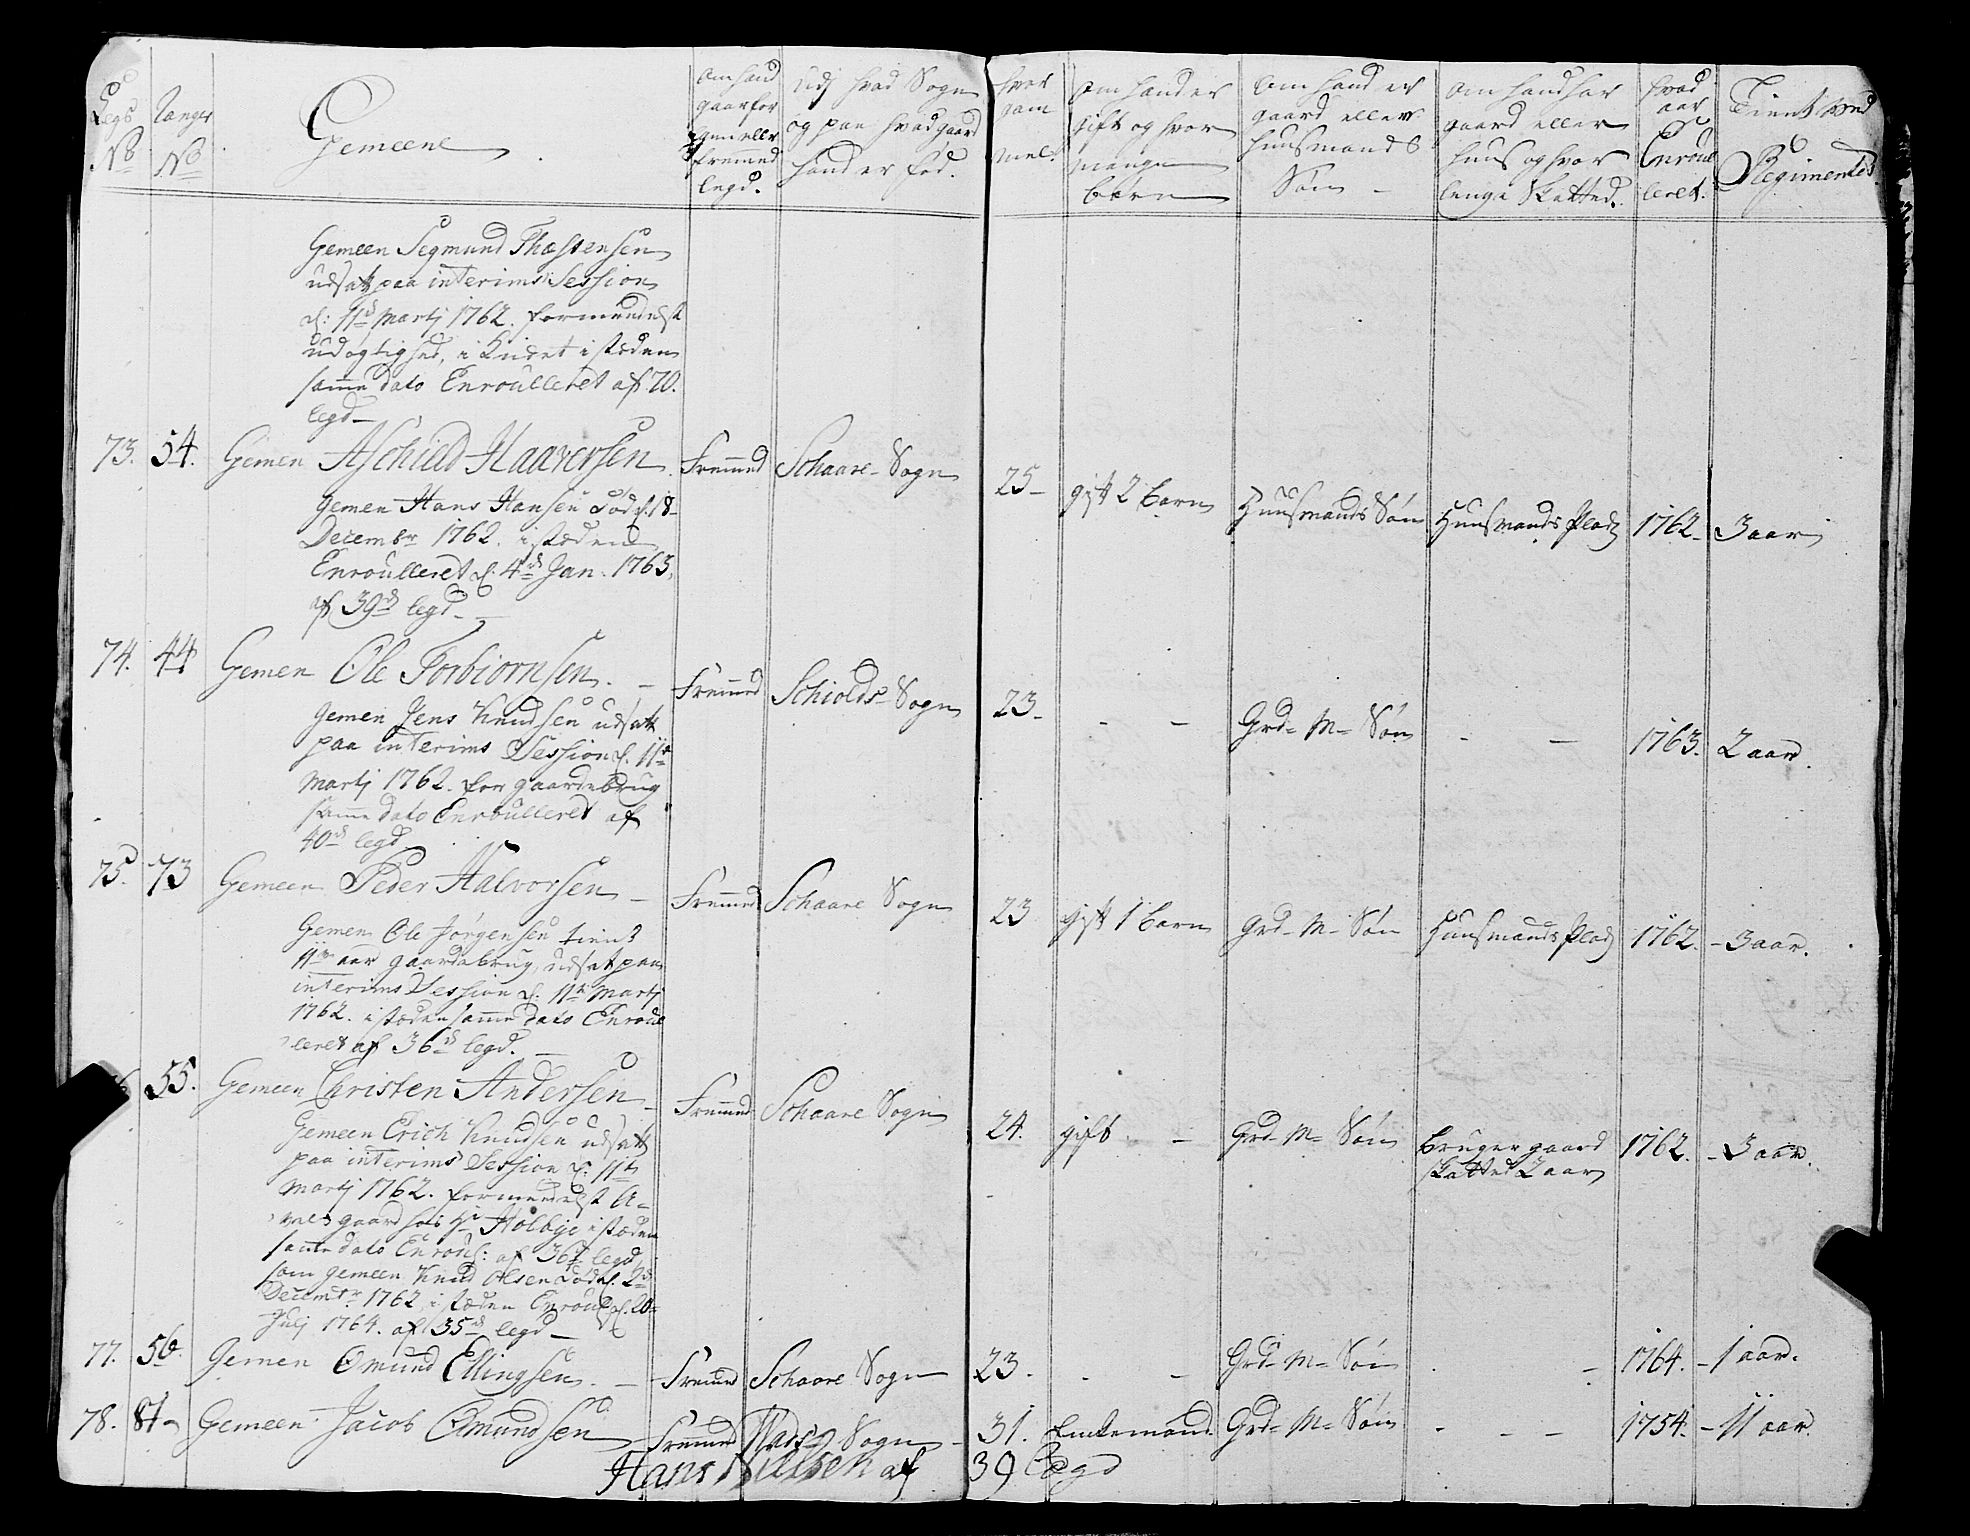 Legs No
Ranger No
Gemeene
om hand gaar for egen eller fremmed legd.
Udj hvad Sogn og paa hvad gaard hand er fød.
hvor gam mel.
om hand er gift og hvor mange børn
om hand er gaard eller huusmands Søn
om hand har gaard eller huus og hvor lenge Skatted.
hvad aar Enroul leret.
Tient ved Regimentet
Gemeen Segmund Thostensen
udsatt paa interims Session
d: 11te Martj 1762. formedelst
udøgtighed, i Kndet i stæden
samme dato Enroulleret af 70.
legd
73. 54. Gemen Aschield Haaversen Fremmed Schaare Sogn 25 gift 2 børn Huusmands Søn Huusmands Pladz 1762 3 aar
Gemen Hans Hansen død d. 18
Decembr 1762. i stæden
Enroulleret d. 4de Jan. 1763.
af 39de legd.
74. 44 Gemen Ole Torbiørnsen. Fremmed Schiolds Sogn 23 - - Grd- M- Søn - - 1763. 2 aar.
Gemen Jens Knudsen udsatt
paa interims Session d. 11te
Martj 1762. for gaardebrug
samme dato Enroulleret af
40de legd
75. 73 Gemeen Peder Halvorsen Fremmed Schaare Sogn 23 gift 1 barn Grd- M- Søn Huusmands Pladz 1762. - 3 aar.
Gemen Ole Jørgensen tient
11 aar gaardebrug, udsat paa
interims Session d. 11te Martj
1762. i stæden samme dato Enroul
leret af 36de legd.
55. Gemeen Christen Andersen Fremmed Schaare Sogn 24. gift - Grd- M- Søn Bruger gaard skatted 2 aar 1762. - 3 aar.
Gemeen Erich Knudsen udsatt
paa interims Session d. 11te
Martj 1762. formedelst A-
vels gaard hos Hr Holbye i stæden
samme dato Enroul: af 36te legd
som gemeen Knud Olsen død d. 2de
Decembr 1762, i stæden Enroul d. 20
Julj 1764. af 35de legd
77. 56. Gemen Omund Ellingsen. Fremed Schaare Sogn 23. - - Grd- M- Søn - - 1764. - 1 aar.
78. 81 Gemeen Jacob Omundsen Fremmed Wads Sogn 31. Enkemand Grd- M- Søn - - - 1754. - 11 aar.
Hans Nillsen af 39 Legd